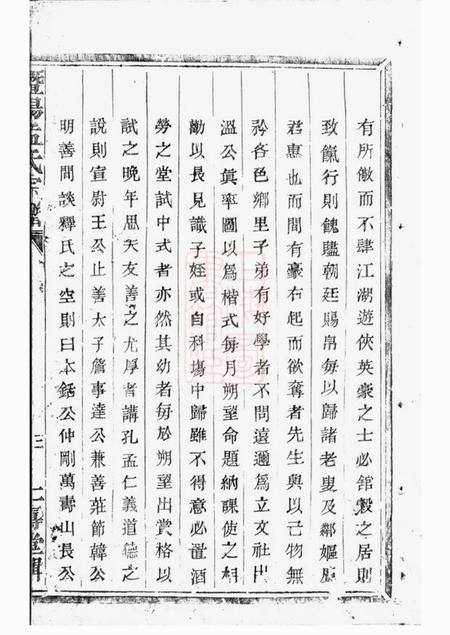 有所儆而不肆江湖遊俠英豪之士必舘榖之居則
致餼行則餽贐朝廷賜帛每以歸諸老叟及鄰嫗
君惠也而間有豪右起而欲奪者先生與以己物無
吝色鄉里子弟有好學者不問遠邇為立文社出
溫公真率圖以為楷式每月朔望命題納課使之相
勸以長見識子姪或自科塲中歸雖不得意必置酒
勞之堂試中式者亦然其幼者每於朔望出賞格以
試之晚年思天友善之尤厚者講孔孟仁義道德之
說則宣尉王公止善太子詹事達公兼善莊節韓公
明善間談釋氏之空則曰本銛公仲剛萬壽山長公
暨陽孟氏宗譜
三